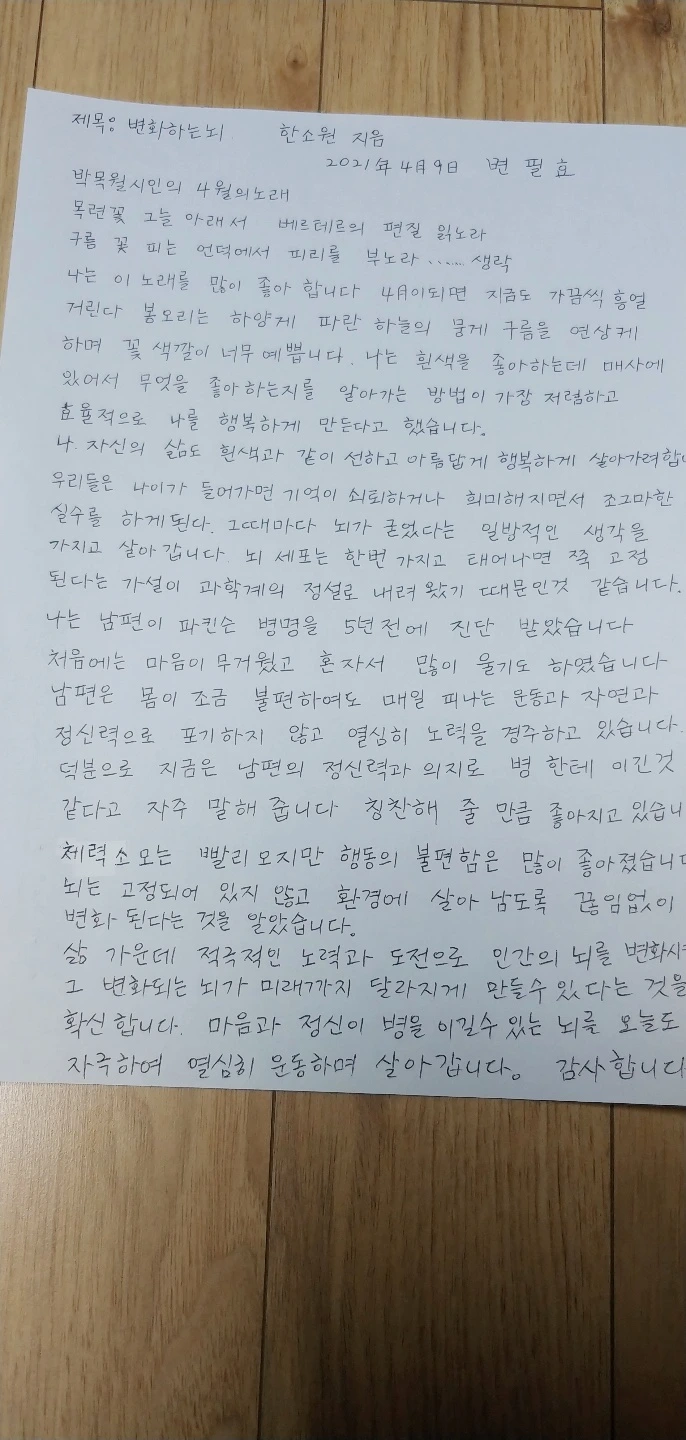 제목: 변화하는뇌 한소원 지음
2021年 4月 9日 변 필 효
박목월시인의 4월의노래
목련꽃 그늘 아래서 베르테르의 편질 읽노라
구름 꽃 피는 언덕에서 피리를 부노라 ....... 생략
나는 이 노래를 많이 좋아 합니다 4月이되면 지금도 가끔씩 흥얼
거린다 봉오리는 하양게 파란 하늘의 뭉게 구름을 연상케
하며 꽃 색깔이 너무 예쁩니다. 나는 흰색을 좋아하는데 매사에
있어서 무엇을 좋아 하는지를 알아가는 방법이 가장 저렴하고
효율적으로 나를 행복하게 만든다고 했습니다.
나. 자신의 삶도 흰색과 같이 선하고 아름답게 행복하게 살아가려합
우리들은 나이가 들어가면 기억이 쇠퇴하거나 희미해지면서 조그마한
실수를 하게된다. 그때마다 뇌가 굳었다는 일방적인 생각을
가지고 살아 갑니다. 뇌 세포는 한번 가지고 태어나면 쭉 고정
된다는 가설이 과학계의 정설로 내려 왔기 때문인것 같습니다.
나는 남편이 파킨슨 병명을 5년전에 진단 받았습니다
처음에는 마음이 무거웠고 혼자서 많이 울기도 하였습니다
남편은 몸이 조금 불편하여도 매일 피나는 운동과 자연과
정신력으로 포기하지 않고 열심히 노력을 경주하고 있습니다.
덕분으로 지금은 남편의 정신력과 의지로 병 한테 이긴것
같다고 자주 말해 줍니다 칭찬해 줄 만큼 좋아지고 있습니
체력소모는 빨리 오지만 행동의 불편함은 많이 좋아졌습니다
뇌는 고정되어 있지 않고 환경에 살아 남도록 끊임없이
변화 된다는 것을 알았습니다.
삶 가운데 적극적인 노력과 도전으로 인간의 뇌를 변화시켜
그 변화되는 뇌가 미래까지 달라지게 만들수 있다는 것을
확신합니다. 마음과 정신이 병을 이길수 있는 뇌를 오늘도
자극하여 열심히 운동하며 살아갑니다. 감사합니다